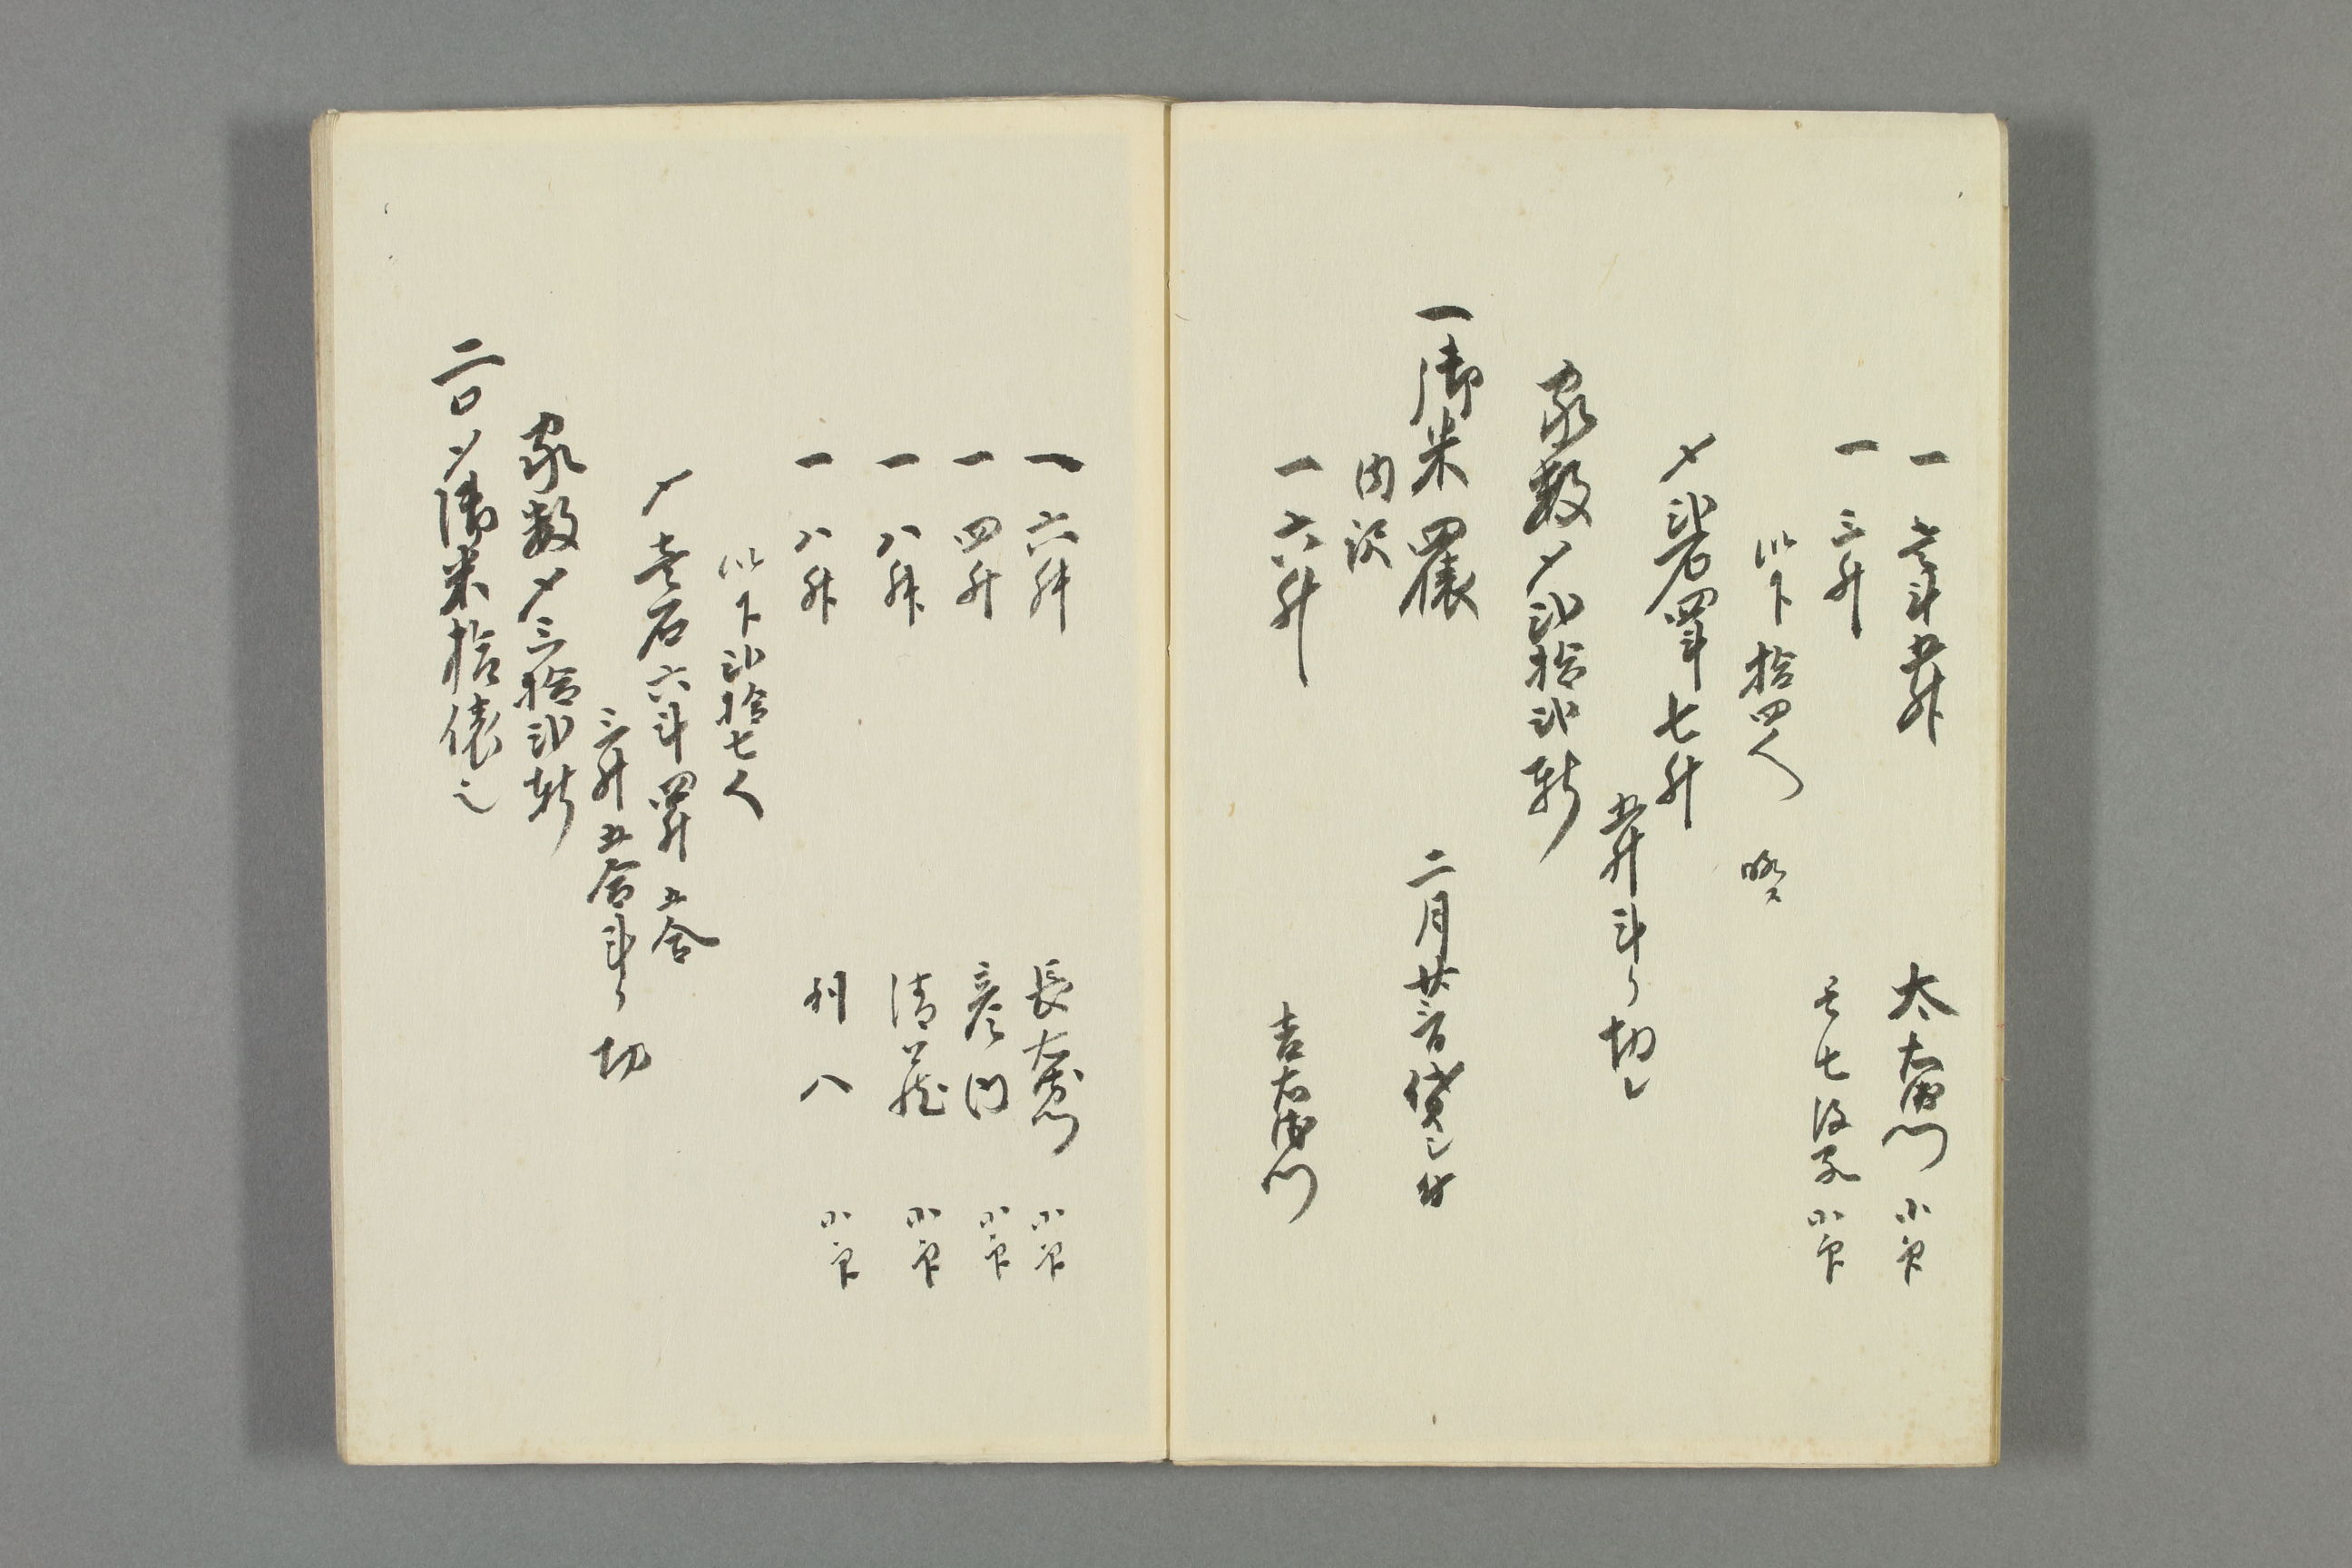 一 壱斗五升 太右衛門 小前
一 三升 七後家 小前
以下拾四人 略ス
〆弐石四斗七升
五升斗り切レ
家数〆弐拾弐軒
一御米四俵 二月廿三日貸し分
内訳
一六升 吉右衛門
一六升 長右衛門 小前
一四升 彦門 小前
一八升 清蔵 小前
一八升 利八 小前
以下弐拾七人
〆壱石六斗四升五合
三升五合斗り切
家数〆三拾弐軒
二口〆御米拾俵也